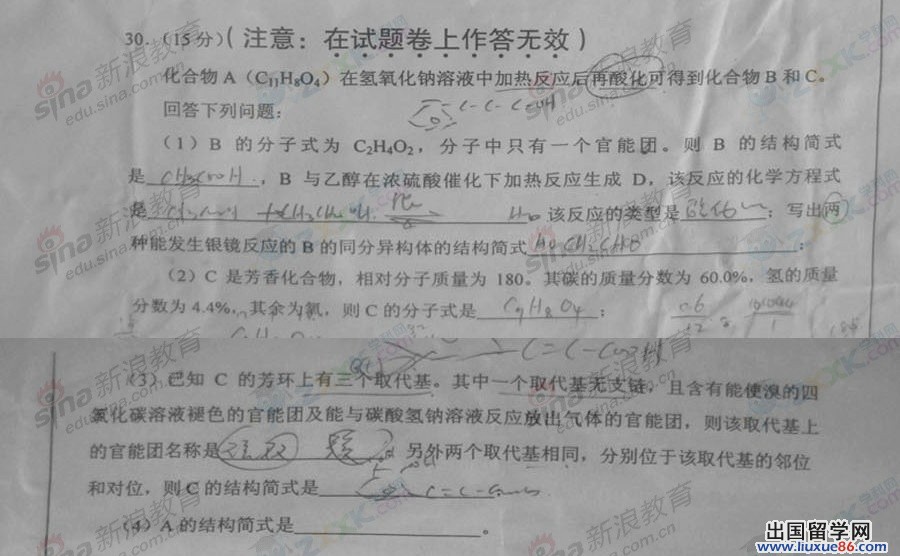 30.（15分）（注意：在试题卷上作答无效）
化合物A（C₁₁H₈O₄）在氢氧化钠溶液中加热反应后再酸化可得到化合物B和C。
回答下列问题：
（1）B的分子式为C₂H₄O₂，分子中只有一个官能团。则B的结构简式
是 CH3COOH ，B与乙醇在浓硫酸催化下加热反应生成D，该反应的化学方程式
是 该反应的类型是 ；写出两
种能发生银镜反应的B的同分异构体的结构简式 HOCH2CHO ；
（2）C是芳香化合物，相对分子质量为180。其碳的质量分数为60.0%，氢的质量
分数为4.4%，其余为氧，则C的分子式是 C9H8O4 ；
（3）已知C的芳环上有三个取代基。其中一个取代基无支链，且含有能使溴的四
氯化碳溶液褪色的官能团及能与碳酸氢钠溶液反应放出气体的官能团，则该取代基上
的官能团名称是 另外两个取代基相同，分别位于该取代基的邻位
和对位，则C的结构简式是
（4）A的结构简式是 。
sina 新浪教育
edu.sina.com.cn
出国留学网
www.liuxue86.com